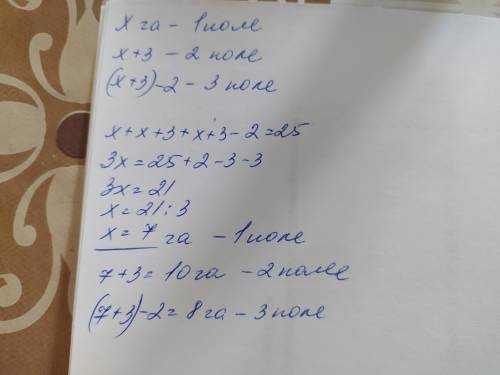 x га - 1 поле
x+3 - 2 поле
(x+3)-2 - 3 поле
x+x+3+x+3-2=25
3x=25+2-3-3
3x=21
x=21:3
x=7 га - 1 поле
7+3=10 га - 2 поле
(7+3)-2=8 га - 3 поле